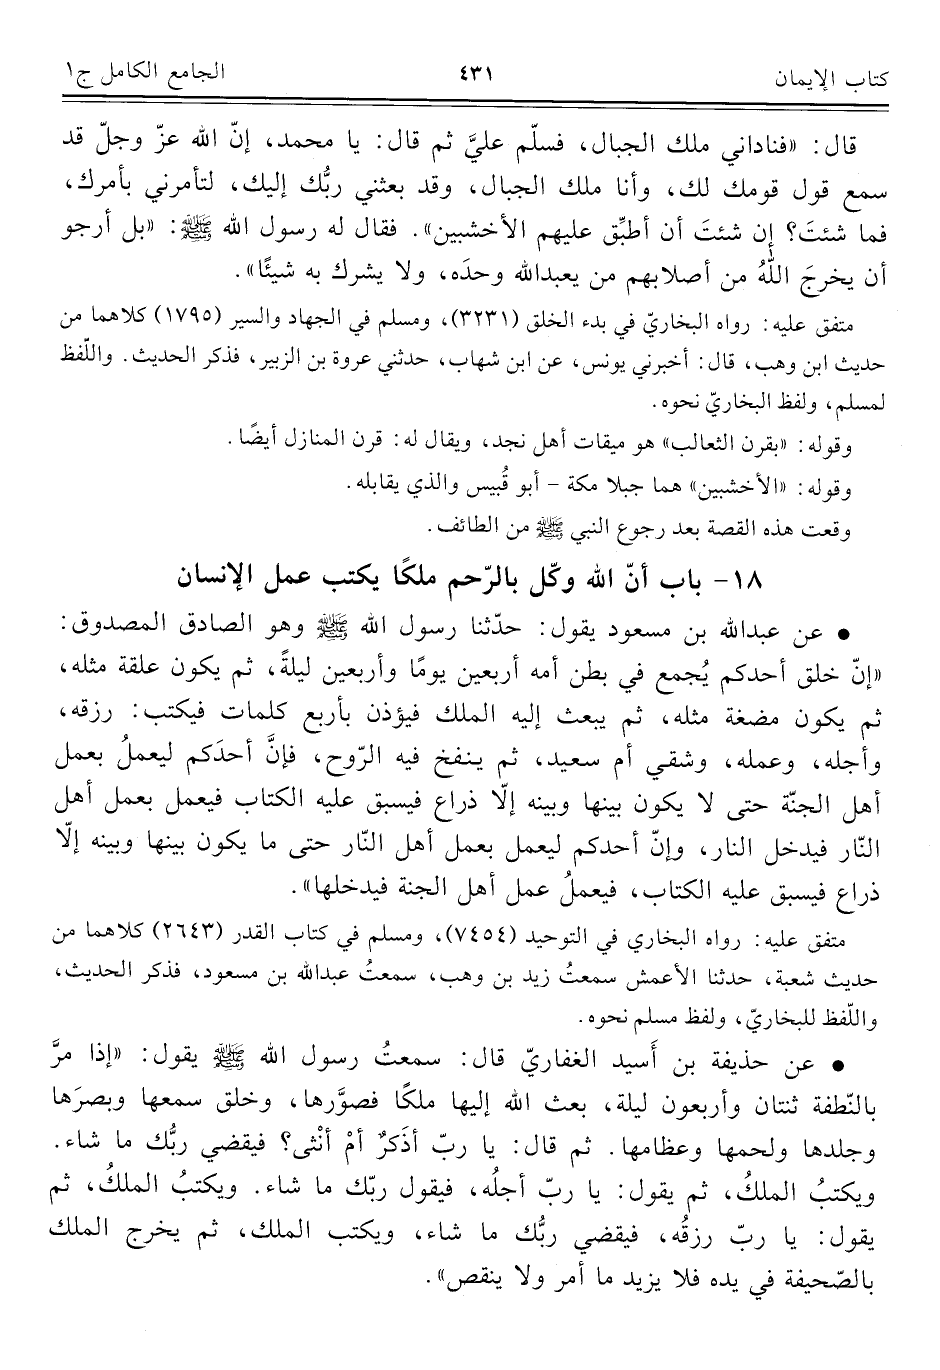 كتاب الإيمان ٤٣١ الجامع الكامل ج١
قال: «فناداني ملك الجبال، فسلّم عليَّ ثم قال: يا محمد، إنّ الله عزّ وجلّ قد
سمع قول قومك لك، وأنا ملك الجبال، وقد بعثني ربُّك إليك، لتأمرني بأمرك،
فما شئتَ؟ إن شئتَ أن أطبِّق عليهم الأخشبين». فقال له رسول الله ﷺ: «بل أرجو
أن يخرجَ اللهُ من أصلابهم من يعبدالله وحدَه، ولا يشرك به شيئًا».
متفق عليه: رواه البخاريّ في بدء الخلق (٣٢٣١)، ومسلم في الجهاد والسير (١٧٩٥) كلاهما من
حديث ابن وهب، قال: أخبرني يونس، عن ابن شهاب، حدثني عروة بن الزبير، فذكر الحديث. واللّفظ
لمسلم، ولفظ البخاريّ نحوه.
وقوله: «بقرن الثعالب» هو ميقات أهل نجد، ويقال له: قرن المنازل أيضًا.
وقوله: «الأخشبين» هما جبلا مكة - أبو قُبيس والذي يقابله.
وقعت هذه القصة بعد رجوع النبي ﷺ من الطائف.
١٨- باب أنّ الله وكّل بالرّحم ملكًا يكتب عمل الإنسان
● عن عبدالله بن مسعود يقول: حدّثنا رسول الله ﷺ وهو الصادق المصدوق:
«إنّ خلق أحدكم يُجمع في بطن أمه أربعين يومًا وأربعين ليلةً، ثم يكون علقة مثله،
ثم يكون مضغة مثله، ثم يبعث إليه الملك فيؤذن بأربع كلمات فيكتب: رزقه،
وأجله، وعمله، وشقي أم سعيد، ثم ينفخ فيه الرّوح، فإنَّ أحدَكم ليعملُ بعمل
أهل الجنّة حتى لا يكون بينها وبينه إلّا ذراع فيسبق عليه الكتاب فيعمل بعمل أهل
النّار فيدخل النار، وإنّ أحدكم ليعمل بعمل أهل النّار حتى ما يكون بينها وبينه إلّا
ذراع فيسبق عليه الكتاب، فيعملُ عمل أهل الجنة فيدخلها».
متفق عليه: رواه البخاري في التوحيد (٧٤٥٤)، ومسلم في كتاب القدر (٢٦٤٣) كلاهما من
حديث شعبة، حدثنا الأعمش سمعتُ زيد بن وهب، سمعتُ عبدالله بن مسعود، فذكر الحديث،
واللّفظ للبخاريّ، ولفظ مسلم نحوه.
● عن حذيفة بن أَسيد الغفاريّ قال: سمعتُ رسول الله ﷺ يقول: «إذا مرَّ
بالنّطفة ثنتان وأربعون ليلة، بعث الله إليها ملكًا فصوَّرها، وخلق سمعها وبصرَها
وجلدها ولحمها وعظامها. ثم قال: يا ربّ أذَكرٌ أمْ أنْثى؟ فيقضي ربُّك ما شاء.
ويكتبُ الملكُ، ثم يقول: يا ربّ أجلُه، فيقول ربّك ما شاء. ويكتبُ الملكُ، ثم
يقول: يا ربّ رزقُه، فيقضي ربُّك ما شاء، ويكتب الملك، ثم يخرج الملك
بالصّحيفة في يده فلا يزيد ما أمر ولا ينقص».